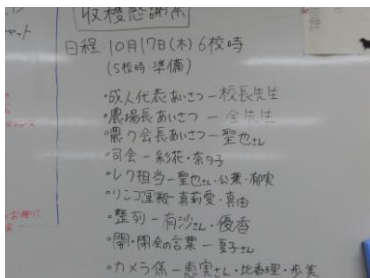 収穫感謝祭
日程:10月17日(木)6校時
(5校時:準備)
・成人代表あいさつー校長先生
・農場長あいさつー金先生
・農ク会長あいさつー聖也さん
・司会ー彩花・奈々子
・レク担当ー聖也さん・公葉・郁実
・リンゴ運搬ー真莉愛・真由
・整列ー有沙さん・優香
・開・閉会の言葉ー夏子さん
・カメラ係ー恵実さん・比香理・歩美